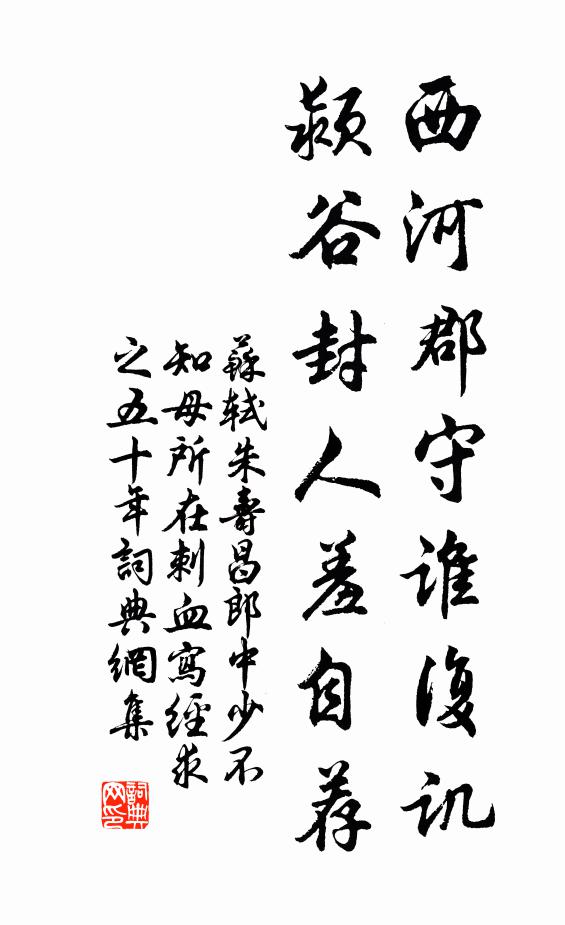 西河郡守誰復訊
颍谷封人羞自荐
蘇軾朱壽昌郎中少不
知母所在刺血寫經求
之五十年詞典網集
詞典
网印